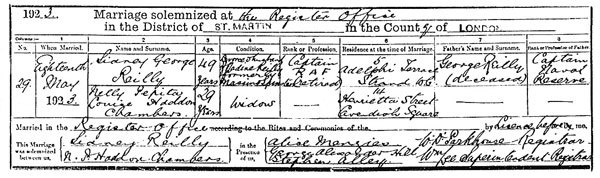 1923. Marriage solemnized at the Register Office
in the District of ST. MARTIN in the County of LONDON
Columns:— 1 2 3 4 5 6 7 8
No. When Married. Name and Surname. Age. Condition. Rank or Profession. Residence at the time of Marriage. Father's Name and Surname. Rank or Profession of Father.
29. Eighteenth May 1923. Sidney George Reilly 49 years Captain RAF (retired) 5 Adelphi Terrace Strand W.C. George Reilly (deceased) Captain Naval Reserve
Nelly Pepita Louise Haddon Chambers. 29 years Widow Henrietta Street Cavendish Square
Married in the Register Office according to the Rites and Ceremonies of the by Licence before me,
This Marriage was solemnized between us, Sidney Reilly in the Presence of us, Alise Menzies W. Parkhouse - Registrar
N. P. Haddon Chambers George Alexander Hill
Stephen Alley Superintendent Registrar